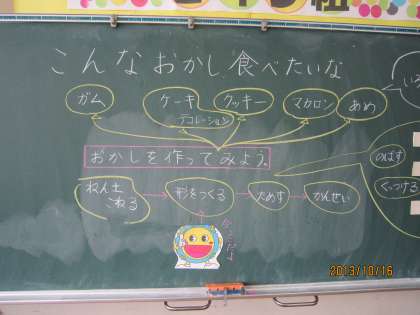 こんなおかし食べたいな
ガム
ケーキ
デコレーション
クッキー
マカロン
あめ
おかしを作ってみよう
のばす
くっつける
ねん土
こねる
形をつくる
ためす
かんせい
2013/10/16